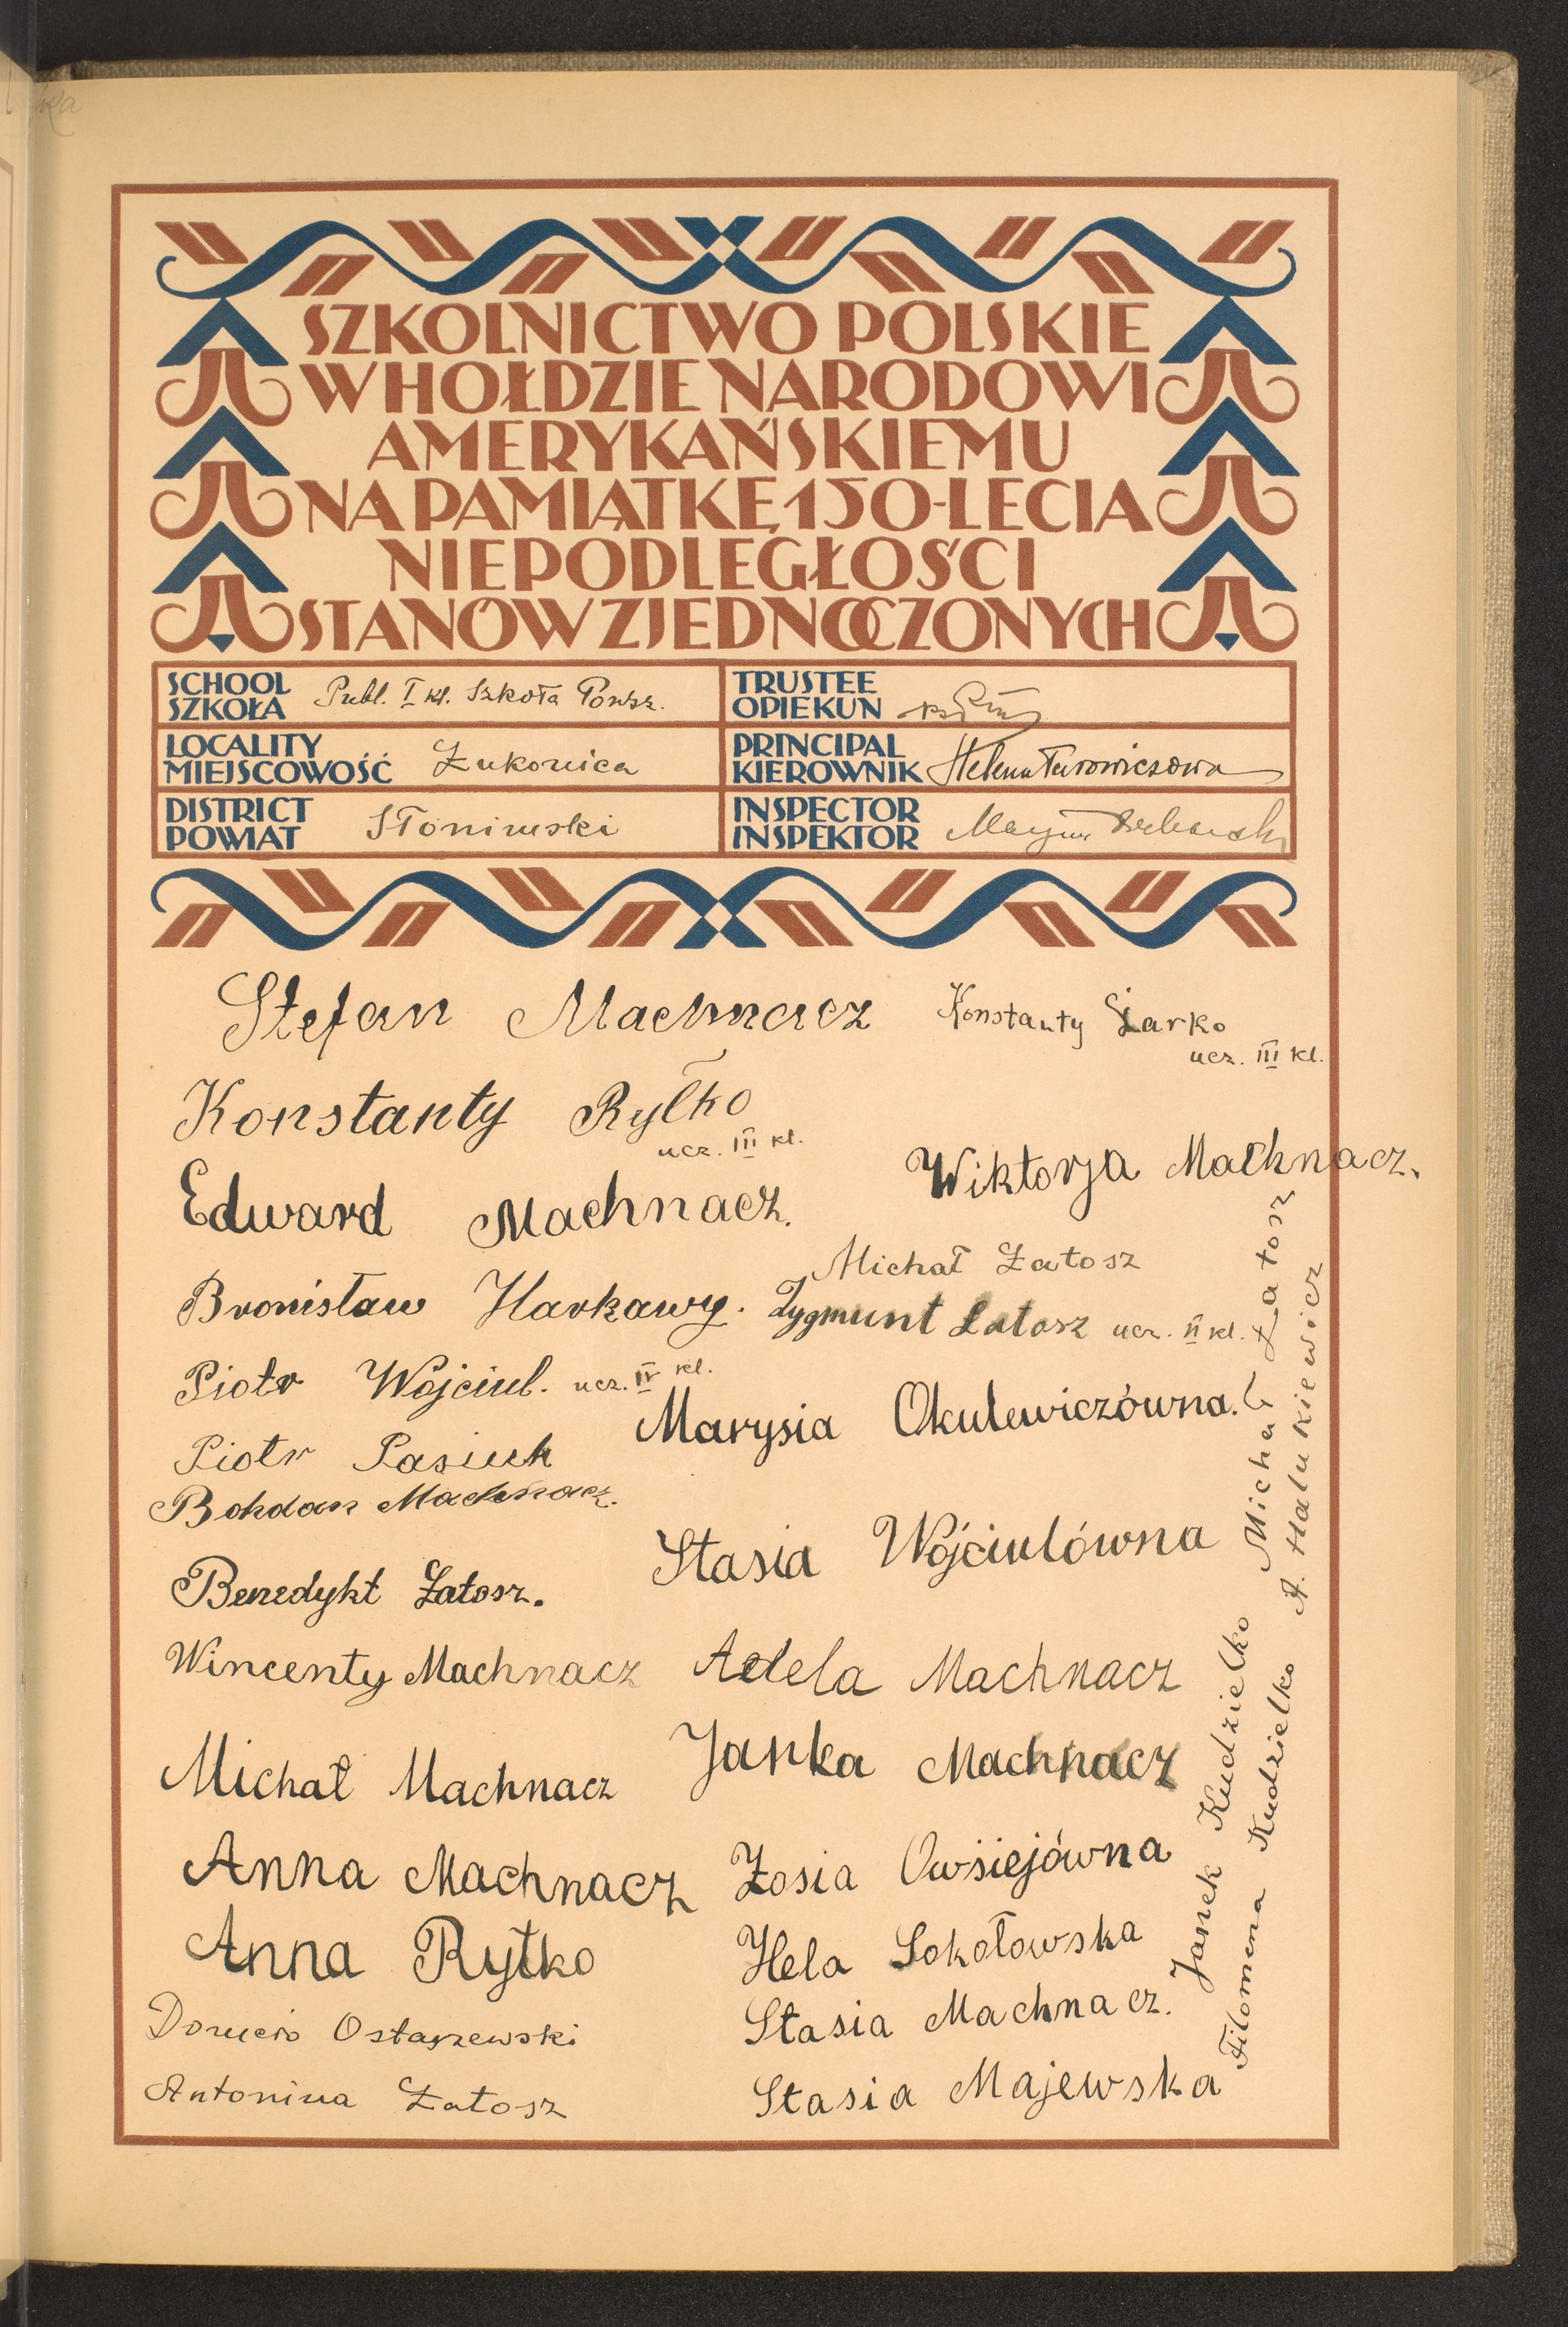 SZKOLNICTWO POLSKIE
W HOŁDZIE NARODOWI
AMERYKAŃSKIEMU
NA PAMIĄTKĘ 150-LECIA
NIEPODLEGŁOŚCI
STANÓW ZJEDNOCZONYCH
SCHOOL
SZKOŁA
Publ. I kl. Szkoła Powsz.
TRUSTEE
OPIEKUN
LOCALITY
MIEJSCOWOŚĆ
Żukowica
PRINCIPAL
KIEROWNIK
Helena Turowiczowa
DISTRICT
POWIAT
Słonimski
INSPECTOR
INSPEKTOR
Stefan Machnacz
Konstanty Żarko
ucz. III kl.
Konstanty Ryłko
ucz. III kl.
Wiktorja Machnacz.
Edward Machnacz.
Michał Łatosz
Bronisław Harkawy.
Zygmunt Łatosz ucz. II kl.
Piotr Wójciul. ucz. IV kl.
Marysia Okulewiczówna.
Piotr Pasiuk
Bohdan Machnacz.
Stasia Wójciulówna
Benedykt Łatosz.
Wincenty Machnacz
Adela Machnacz
Michał Machnacz
Janka Machnacz
Anna Machnacz
Zosia Owsiejówna
Anna Rytko
Hela Sokołowska
Ostaszewski
Stasia Machnacz.
Antonina Łatosz
Stasia Majewska
Michał Łatosz
A. Halukiewicz
Janek Kudzielko
Filomena Kudzielko